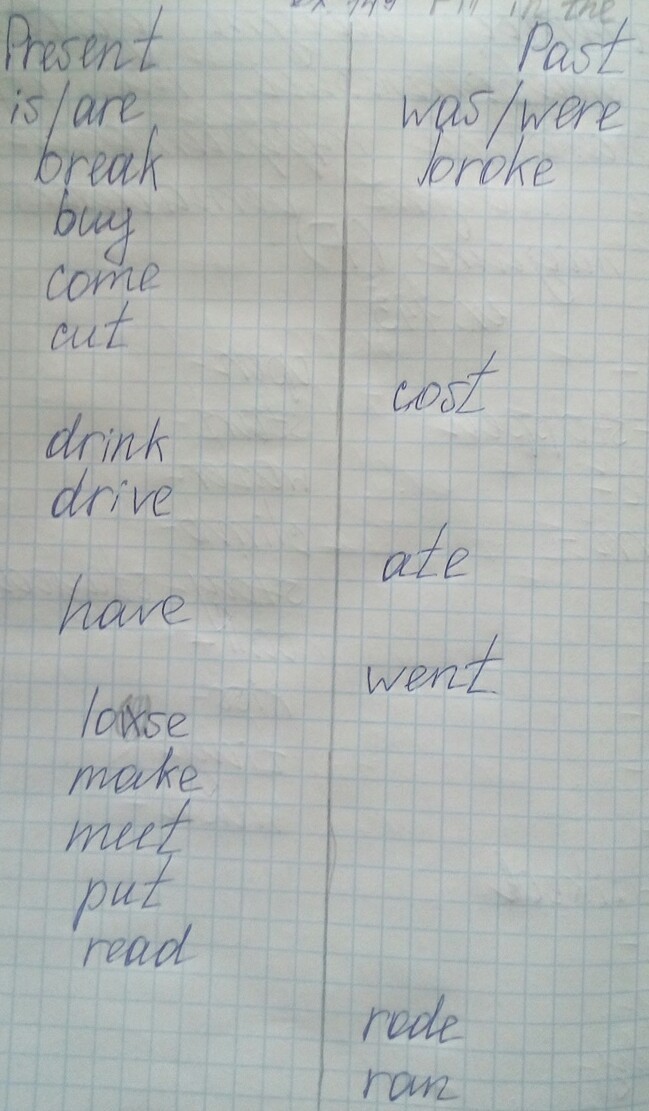 Ex. 149 Fill in the
Present Past
is/are was/were
break broke
buy
come
cut
cost
drink
drive
ate
have
went
lose
make
meet
put
read
rode
ran